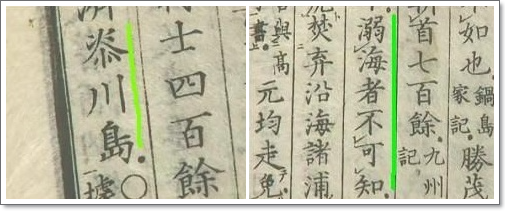 士四百餘
漆川島。○
如也鍋島家記勝茂
首七百餘。九州記
溺海者不可知。
焚弃沿海諸浦
元均走免